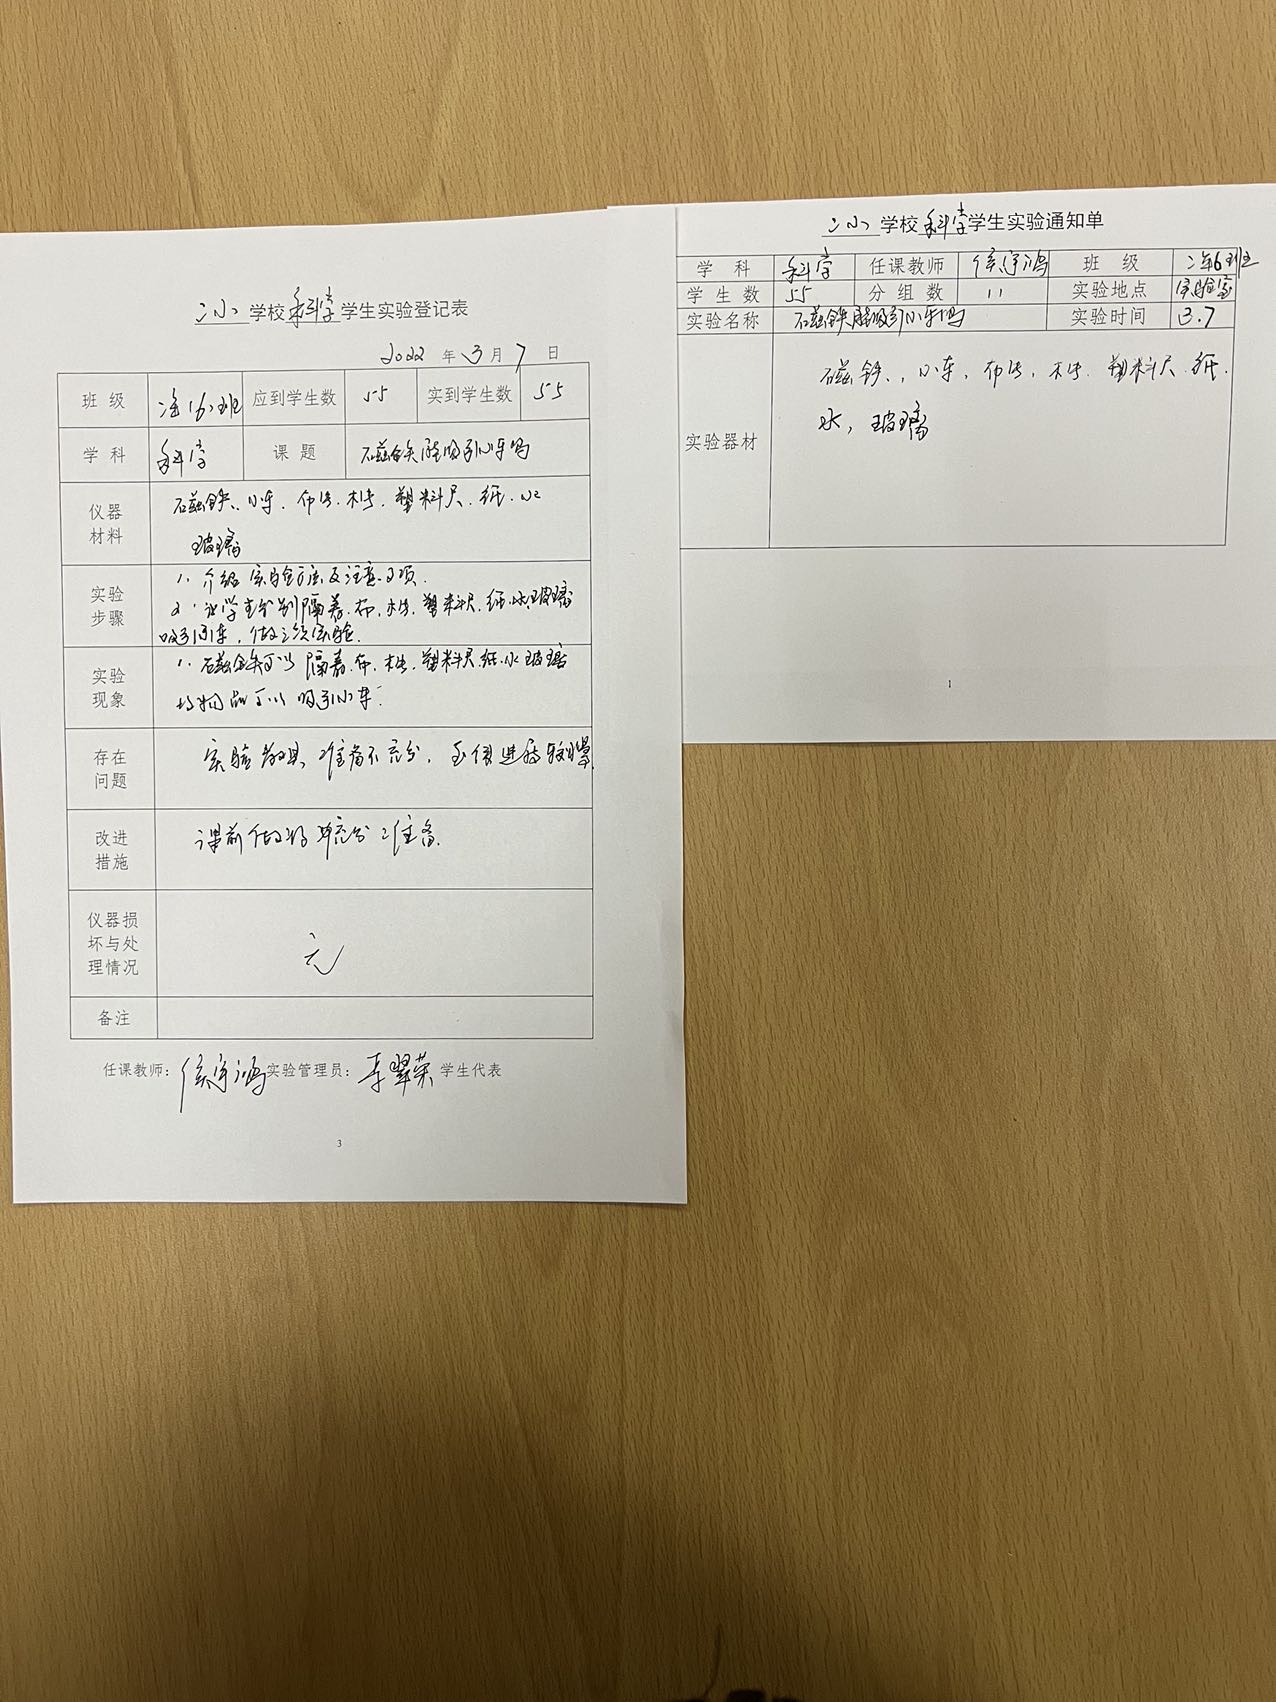 二小学校科学学生实验登记表
2022年3月7日
班级 二年(6)班 应到学生数 55 实到学生数 55
学科 科学 课题 磁铁能吸引小车吗
仪器材料 磁铁、小车、布、木片、塑料尺、纸、水
玻璃
实验步骤 1、介绍实验方法及注意事项.
2、让学生分别隔着布、木片、塑料尺、纸、水、玻璃
吸引小车,做三次实验.
实验现象 1、磁铁可以隔着布、木片、塑料尺、纸、水、玻璃
物品可以吸引小车.
存在问题 实验教具准备不充分,
改进措施 课前做好充分准备.
仪器损坏与处理情况 无
备注
任课教师: 实验管理员: 李翠荣 学生代表
3
二小学校科学学生实验通知单
学科 科学 任课教师 班级 二年6班
学生数 55 分组数 11 实验地点 实验室
实验名称 磁铁能吸引小车吗 实验时间 3.7
实验器材 磁铁、小车、布、木片、塑料尺、纸、
水,玻璃
1